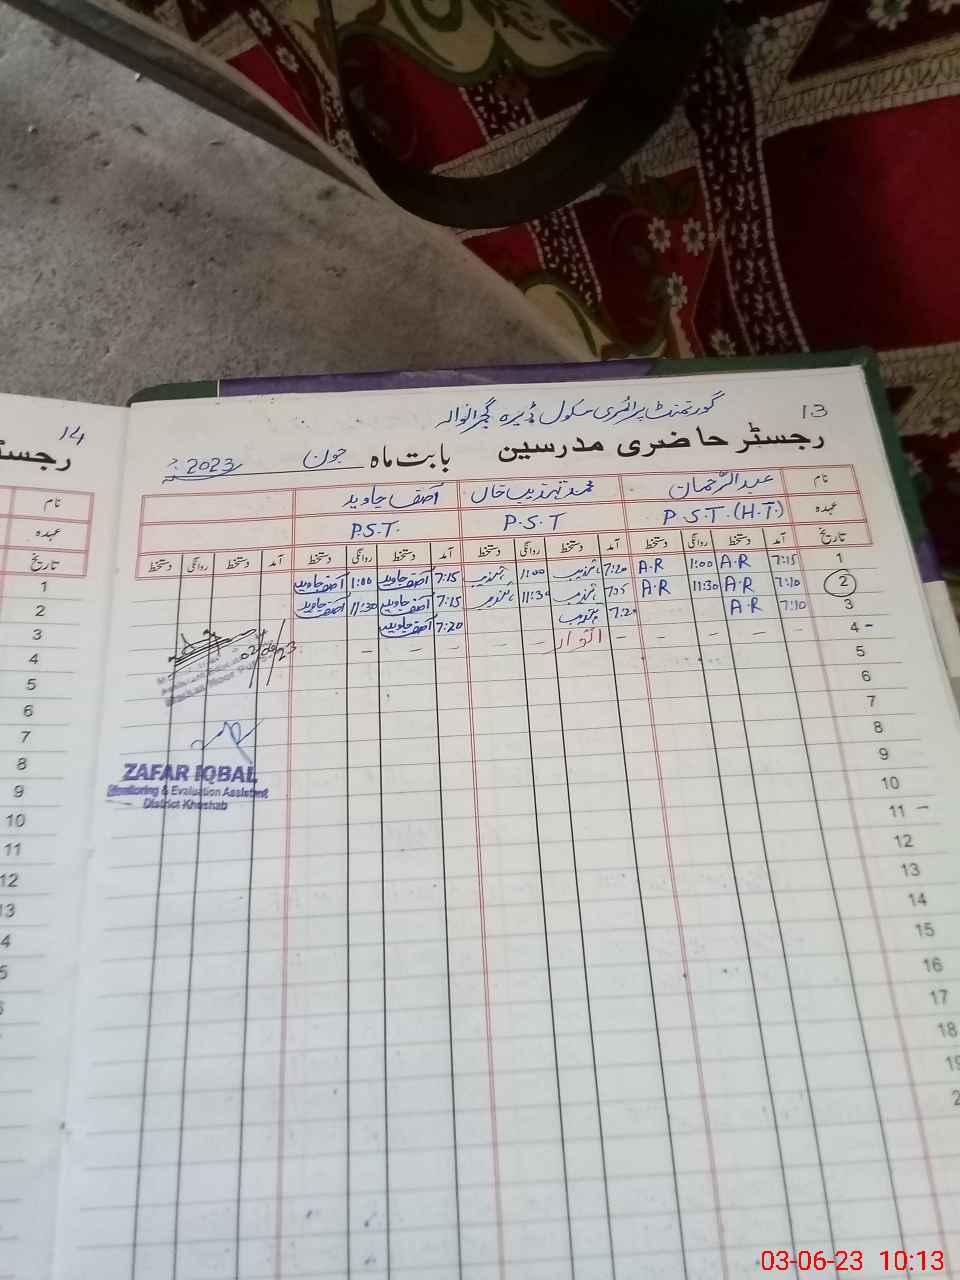 گورنمنٹ پرائمری سکول ڈیرہ گجرانوالہ 13
رجسٹر حاضری مدرسین بابت ماہ جون 2023ء
نام عبدالرحمان محمد تہذیب خاں آصف جاوید
عہدہ P.S.T.(H.T.) P.S.T P.S.T.
تاریخ آمد دستخط روانگی دستخط آمد دستخط روانگی دستخط آمد دستخط روانگی دستخط آمد دستخط روانگی دستخط
1 7:15 A.R 1:00 A.R 7:20 تہذیب 1:00 تہذیب 7:15 آصف جاوید 1:00 آصف جاوید
2 7:10 A.R 11:30 A.R تہذیب 11:30 تہذیب 7:15 آصف جاوید 11:30 آصف جاوید
3 7:10 A.R 7:20 تہذیب 7:20 آصف جاوید
4 - - - - - اتوار - - - - - -
5
6
7
8
9
10
11 -
12
13
14
15
16
17
18
19
02/06/23
ZAFAR IQBAL
Monitoring & Evaluation Assistant
District Khushab
14
رجسٹ
نام
عہدہ
تاریخ
1
2
3
4
5
6
7
8
9
10
11
12
13
03-06-23 10:13